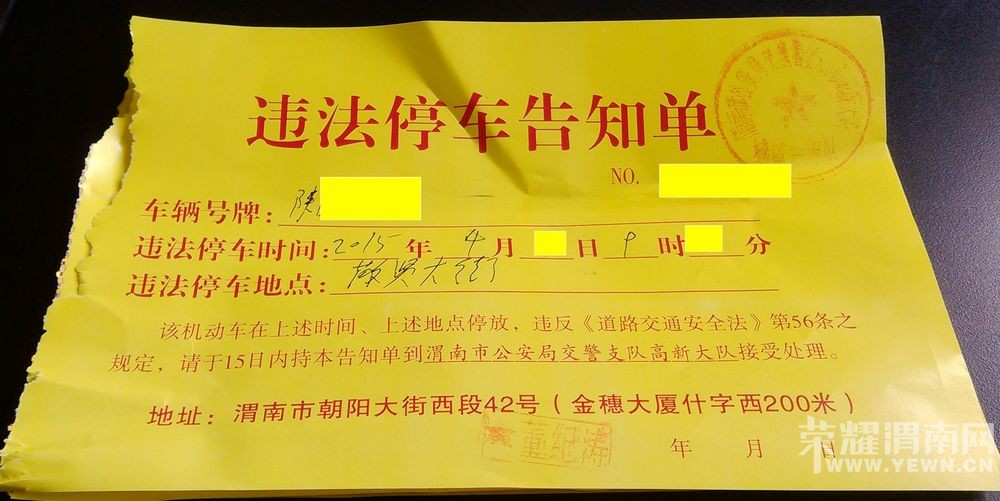 违法停车告知单
NO.
车辆号牌：陕
违法停车时间：2015年4月 日9时 分
违法停车地点：敬贤大街
该机动车在上述时间、上述地点停放，违反《道路交通安全法》第56条之
规定，请于15日内持本告知单到渭南市公安局交警支队高新大队接受处理。
地址：渭南市朝阳大街西段42号（金穗大厦什字西200米）
董纪涛
年 月 日
荣耀渭南网
WWW.YEWN.CN